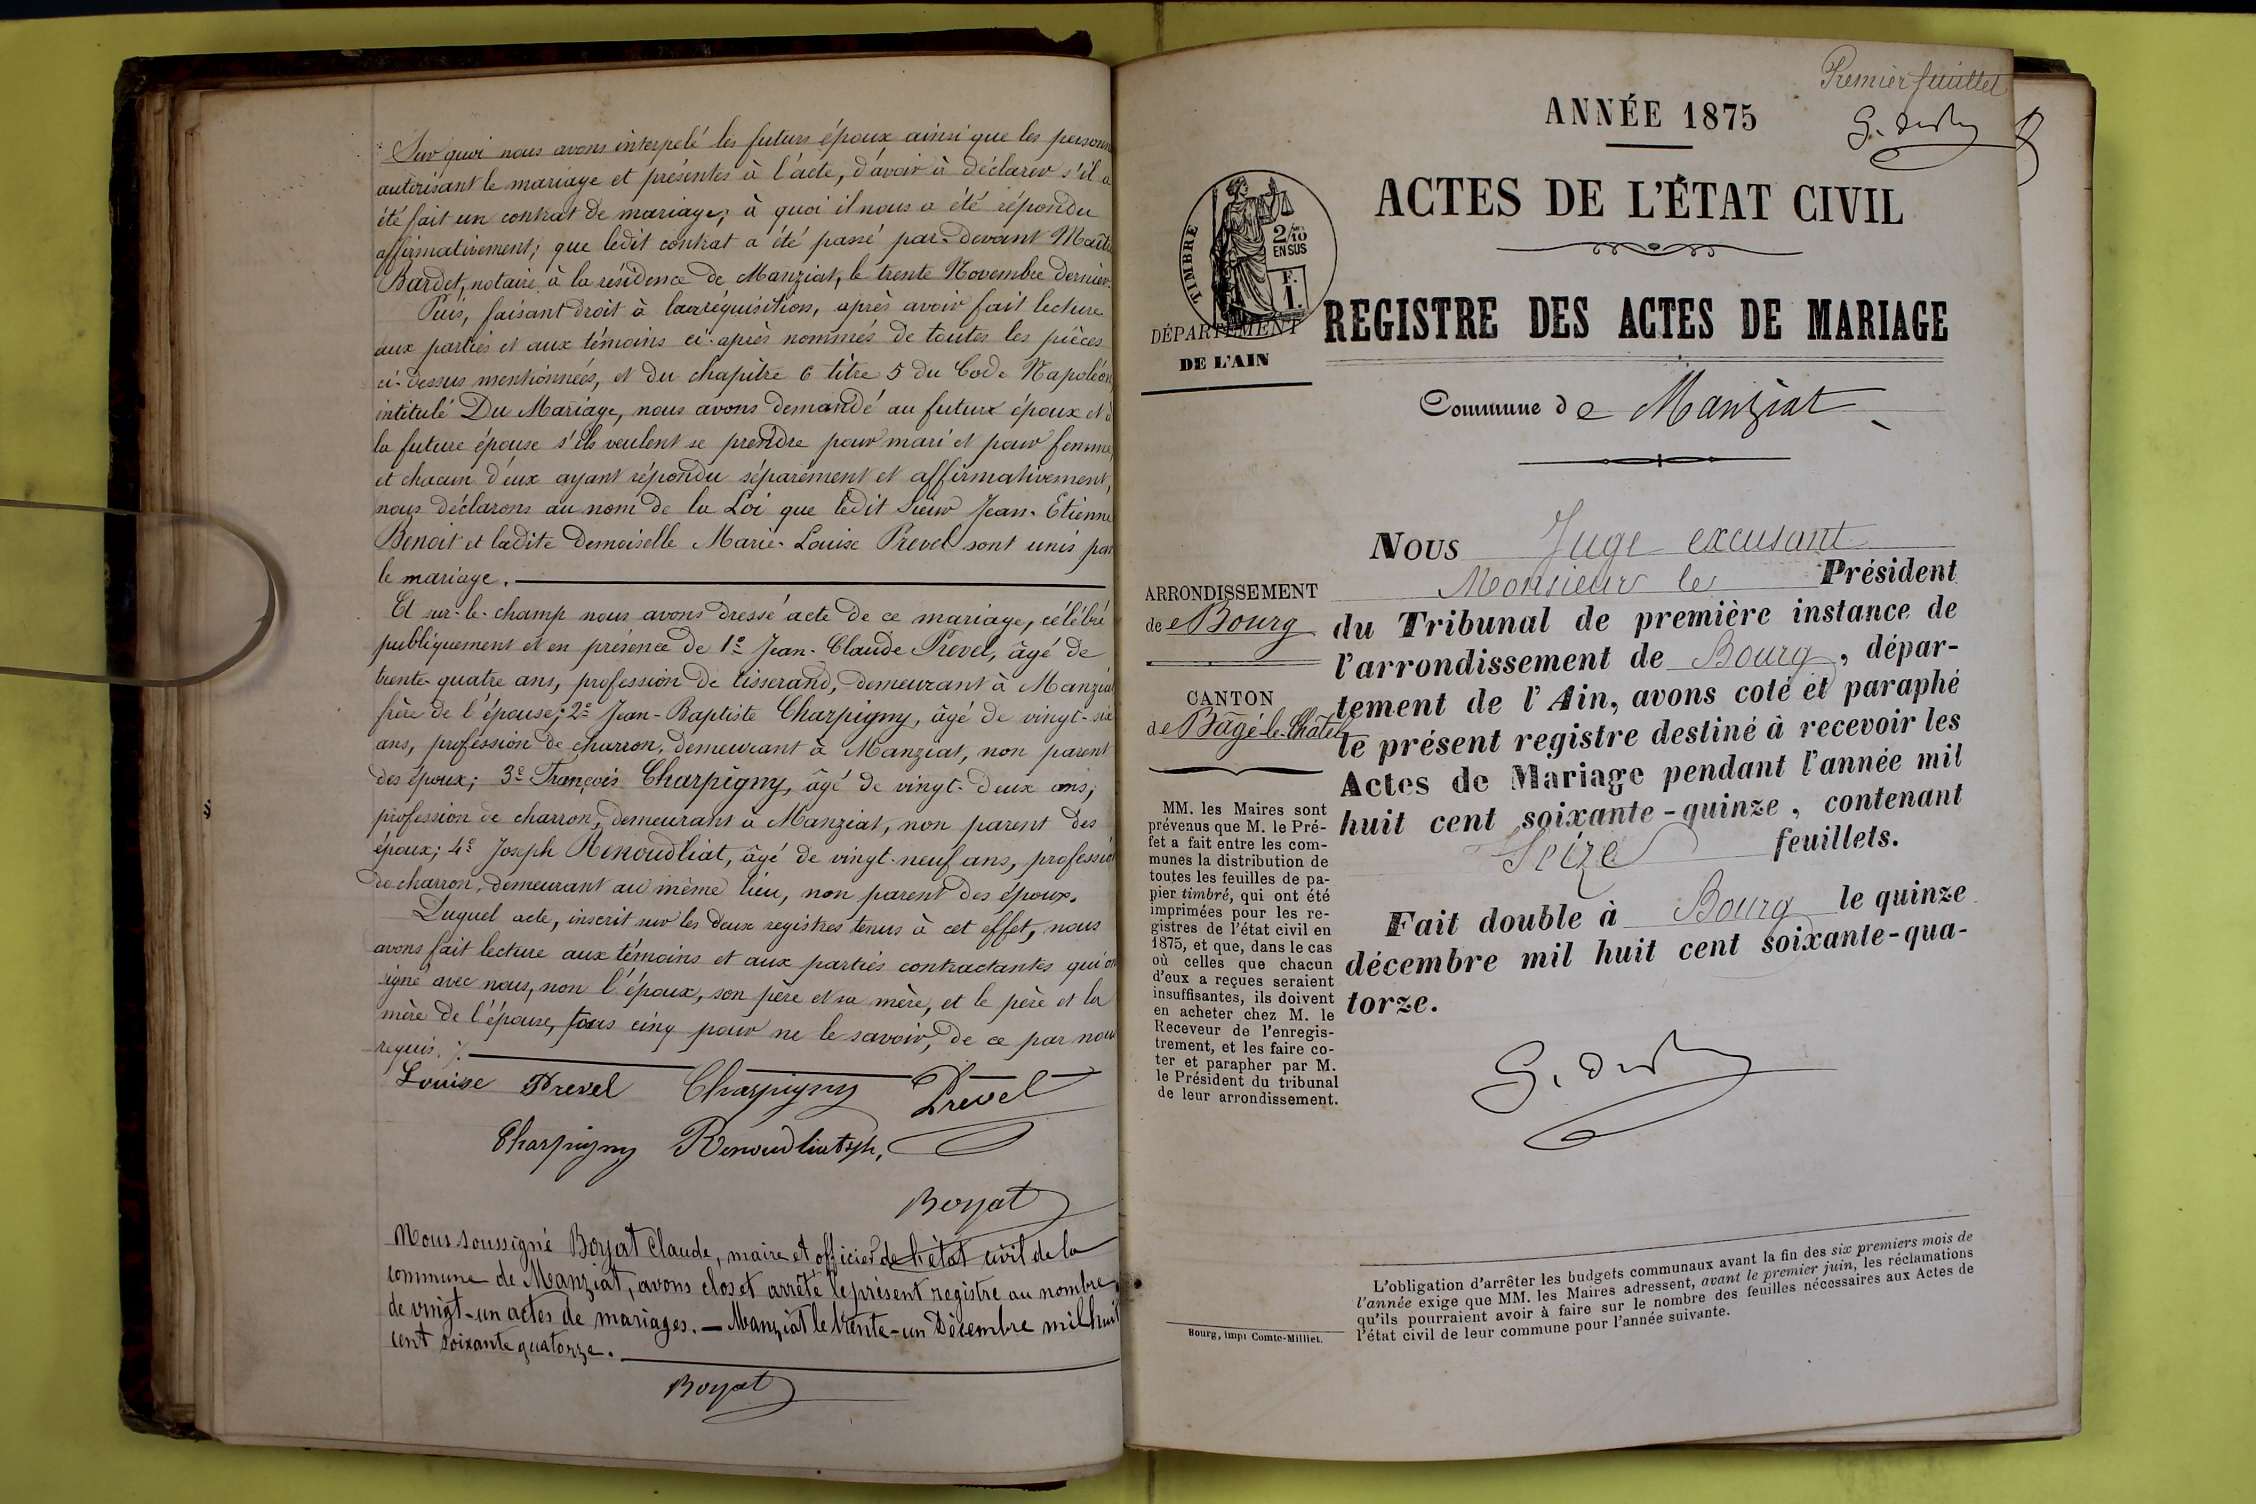 Sur quoi nous avons interpelé les futurs époux ainsi que les person
autorisant le mariage et présentes à l'acte, d'avoir à déclarer s'il a
été fait un contrat de mariage; à quoi il nous a été répondu
affirmativement; que ledit contrat a été passé par-devant Maître
Bardet, notaire à la résidence de Manziat, le trente Novembre dernier.
Puis, faisant droit à la réquisition, après avoir fait lecture
aux parties et aux témoins ci-après nommés de toutes les pièces
ci-dessus mentionnées, et du chapitre 6 titre 5 du Code Napoléon
intitulé Du Mariage, nous avons demandé au futur époux et à
la future épouse s'ils veulent se prendre pour mari et pour femme,
et chacun d'eux ayant répondu séparément et affirmativement,
nous déclarons au nom de la Loi que ledit Sieur Jean-Etienne
Benoit et ladite Demoiselle Marie-Louise Prevel sont unis par
le mariage.
Et sur-le-champ nous avons dressé acte de ce mariage, célébré
publiquement et en présence de 1º Jean-Claude Prevel, âgé de
trente-quatre ans, profession de tisserand, demeurant à Manziat
frère de l'épouse; 2º Jean-Baptiste Charpigny, âgé de vingt-six
ans, profession de charron, demeurant à Manziat, non parent
des époux; 3º François Charpigny, âgé de vingt-deux ans,
profession de charron, demeurant à Manziat, non parent des
époux; 4º Joseph Renoudliat, âgé de vingt-neuf ans, profession
de charron, demeurant au même lieu, non parent des époux.
Duquel acte, inscrit sur les deux registres tenus à cet effet, nous
avons fait lecture aux témoins et aux parties contractantes qui on
signé avec nous, non l'époux, son père et sa mère, et le père et la
mère de l'épouse, tous cinq pour ne le savoir, de ce par nous
requis. /.
Louise Prevel Charpigny Prevel
Charpigny Renoudliat Jph,
Boyat
Nous soussigné Boyat Claude, maire et officier de l'état civil de la
commune de Manziat, avons clos et arrêté le présent registre au nombre
de vingt-un actes de mariages. — Manziat le trente-un Décembre mil huit
cent soixante quatorze.
Boyat
Premier feuillet
ANNÉE 1875
ACTES DE L'ÉTAT CIVIL
TIMBRE
2/10
EN SUS
F.
1.
DÉPARTEMENT
DE L'AIN
REGISTRE DES ACTES DE MARIAGE
Commune de Manziat
ARRONDISSEMENT
de Bourg
CANTON
de Bâgé-le-Châtel
MM. les Maires sont
prévenus que M. le Pré-
fet a fait entre les com-
munes la distribution de
toutes les feuilles de pa-
pier timbré, qui ont été
imprimées pour les re-
gistres de l'état civil en
1875, et que, dans le cas
où celles que chacun
d'eux a reçues seraient
insuffisantes, ils doivent
en acheter chez M. le
Receveur de l'enregis-
trement, et les faire co-
ter et parapher par M.
le Président du tribunal
de leur arrondissement.
Bourg, imp. Comte-Milliet.
Nous Juge excusant
Monsieur le Président
du Tribunal de première instance de
l'arrondissement de Bourg, dépar-
tement de l'Ain, avons coté et paraphé
le présent registre destiné à recevoir les
Actes de Mariage pendant l'année mil
huit cent soixante-quinze, contenant
Seize feuillets.
Fait double à Bourg le quinze
décembre mil huit cent soixante-qua-
torze.
L'obligation d'arrêter les budgets communaux avant la fin des six premiers mois de
l'année exige que MM. les Maires adressent, avant le premier juin, les réclamations
qu'ils pourraient avoir à faire sur le nombre des feuilles nécessaires aux Actes de
l'état civil de leur commune pour l'année suivante.